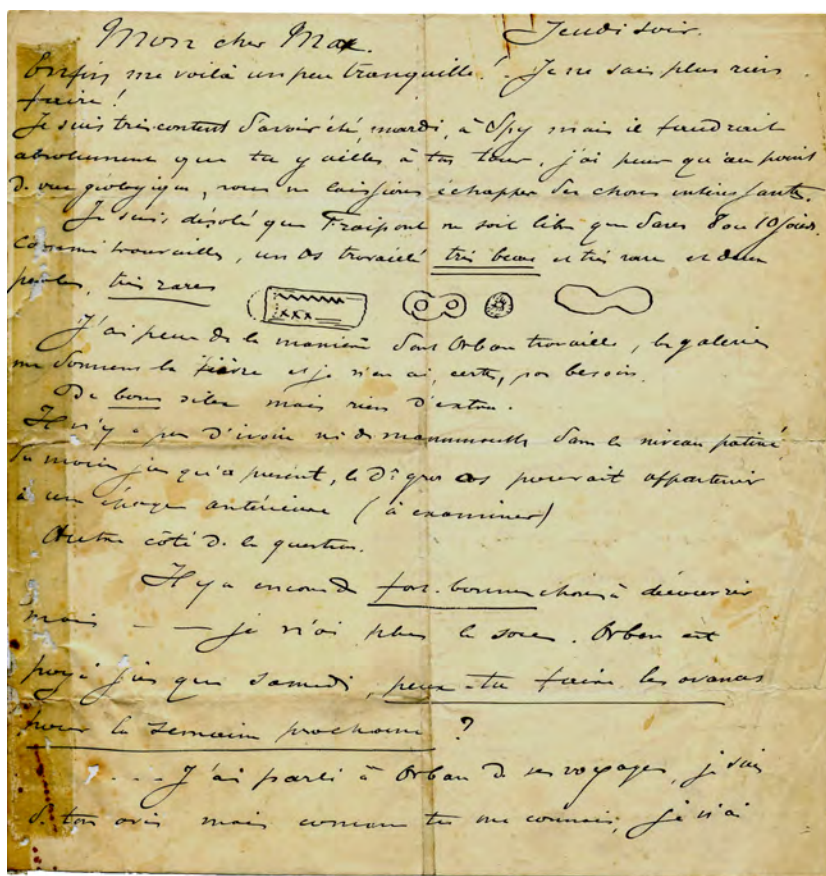 Mon cher Max. Jeudi soir.
Enfin, me voilà un peu tranquille ! Je ne sais plus rien
faire !
Je suis très content d'avoir été, mardi, à Spy mais il faudrait
absolument que tu y ailles à ton tour, j'ai peur qu'au point
de vue géologique, nous ne laissions échapper des choses intéressantes.
Je suis désolé que Fraipont ne soit libre que dans 8 ou 10 jours.
Comme trouvailles, un os travaillé très beau et très rare et deux
perles, très rares
J'ai peur de la manière dont Orban travaille, les galeries
me donnent la fièvre et je n'en ai, certes, pas besoin.
De bons silex mais rien d'extra.
Il n'y a pas d'ivoire ni de mammouth dans le niveau patiné
du moins jusqu'à présent, le dr gros os pourrait appartenir
à un étage antérieur (à examiner)
Autre côté de la question.
Il y a encore de fort bonnes choses à découvrir
mais — — je n'ai plus le sou. Orban est
payé jusque samedi, peux-tu faire les avances
pour la semaine prochaine ?
... J'ai parlé à Orban de ses voyages, je suis
de ton avis mais comme tu me connais, je n'ai